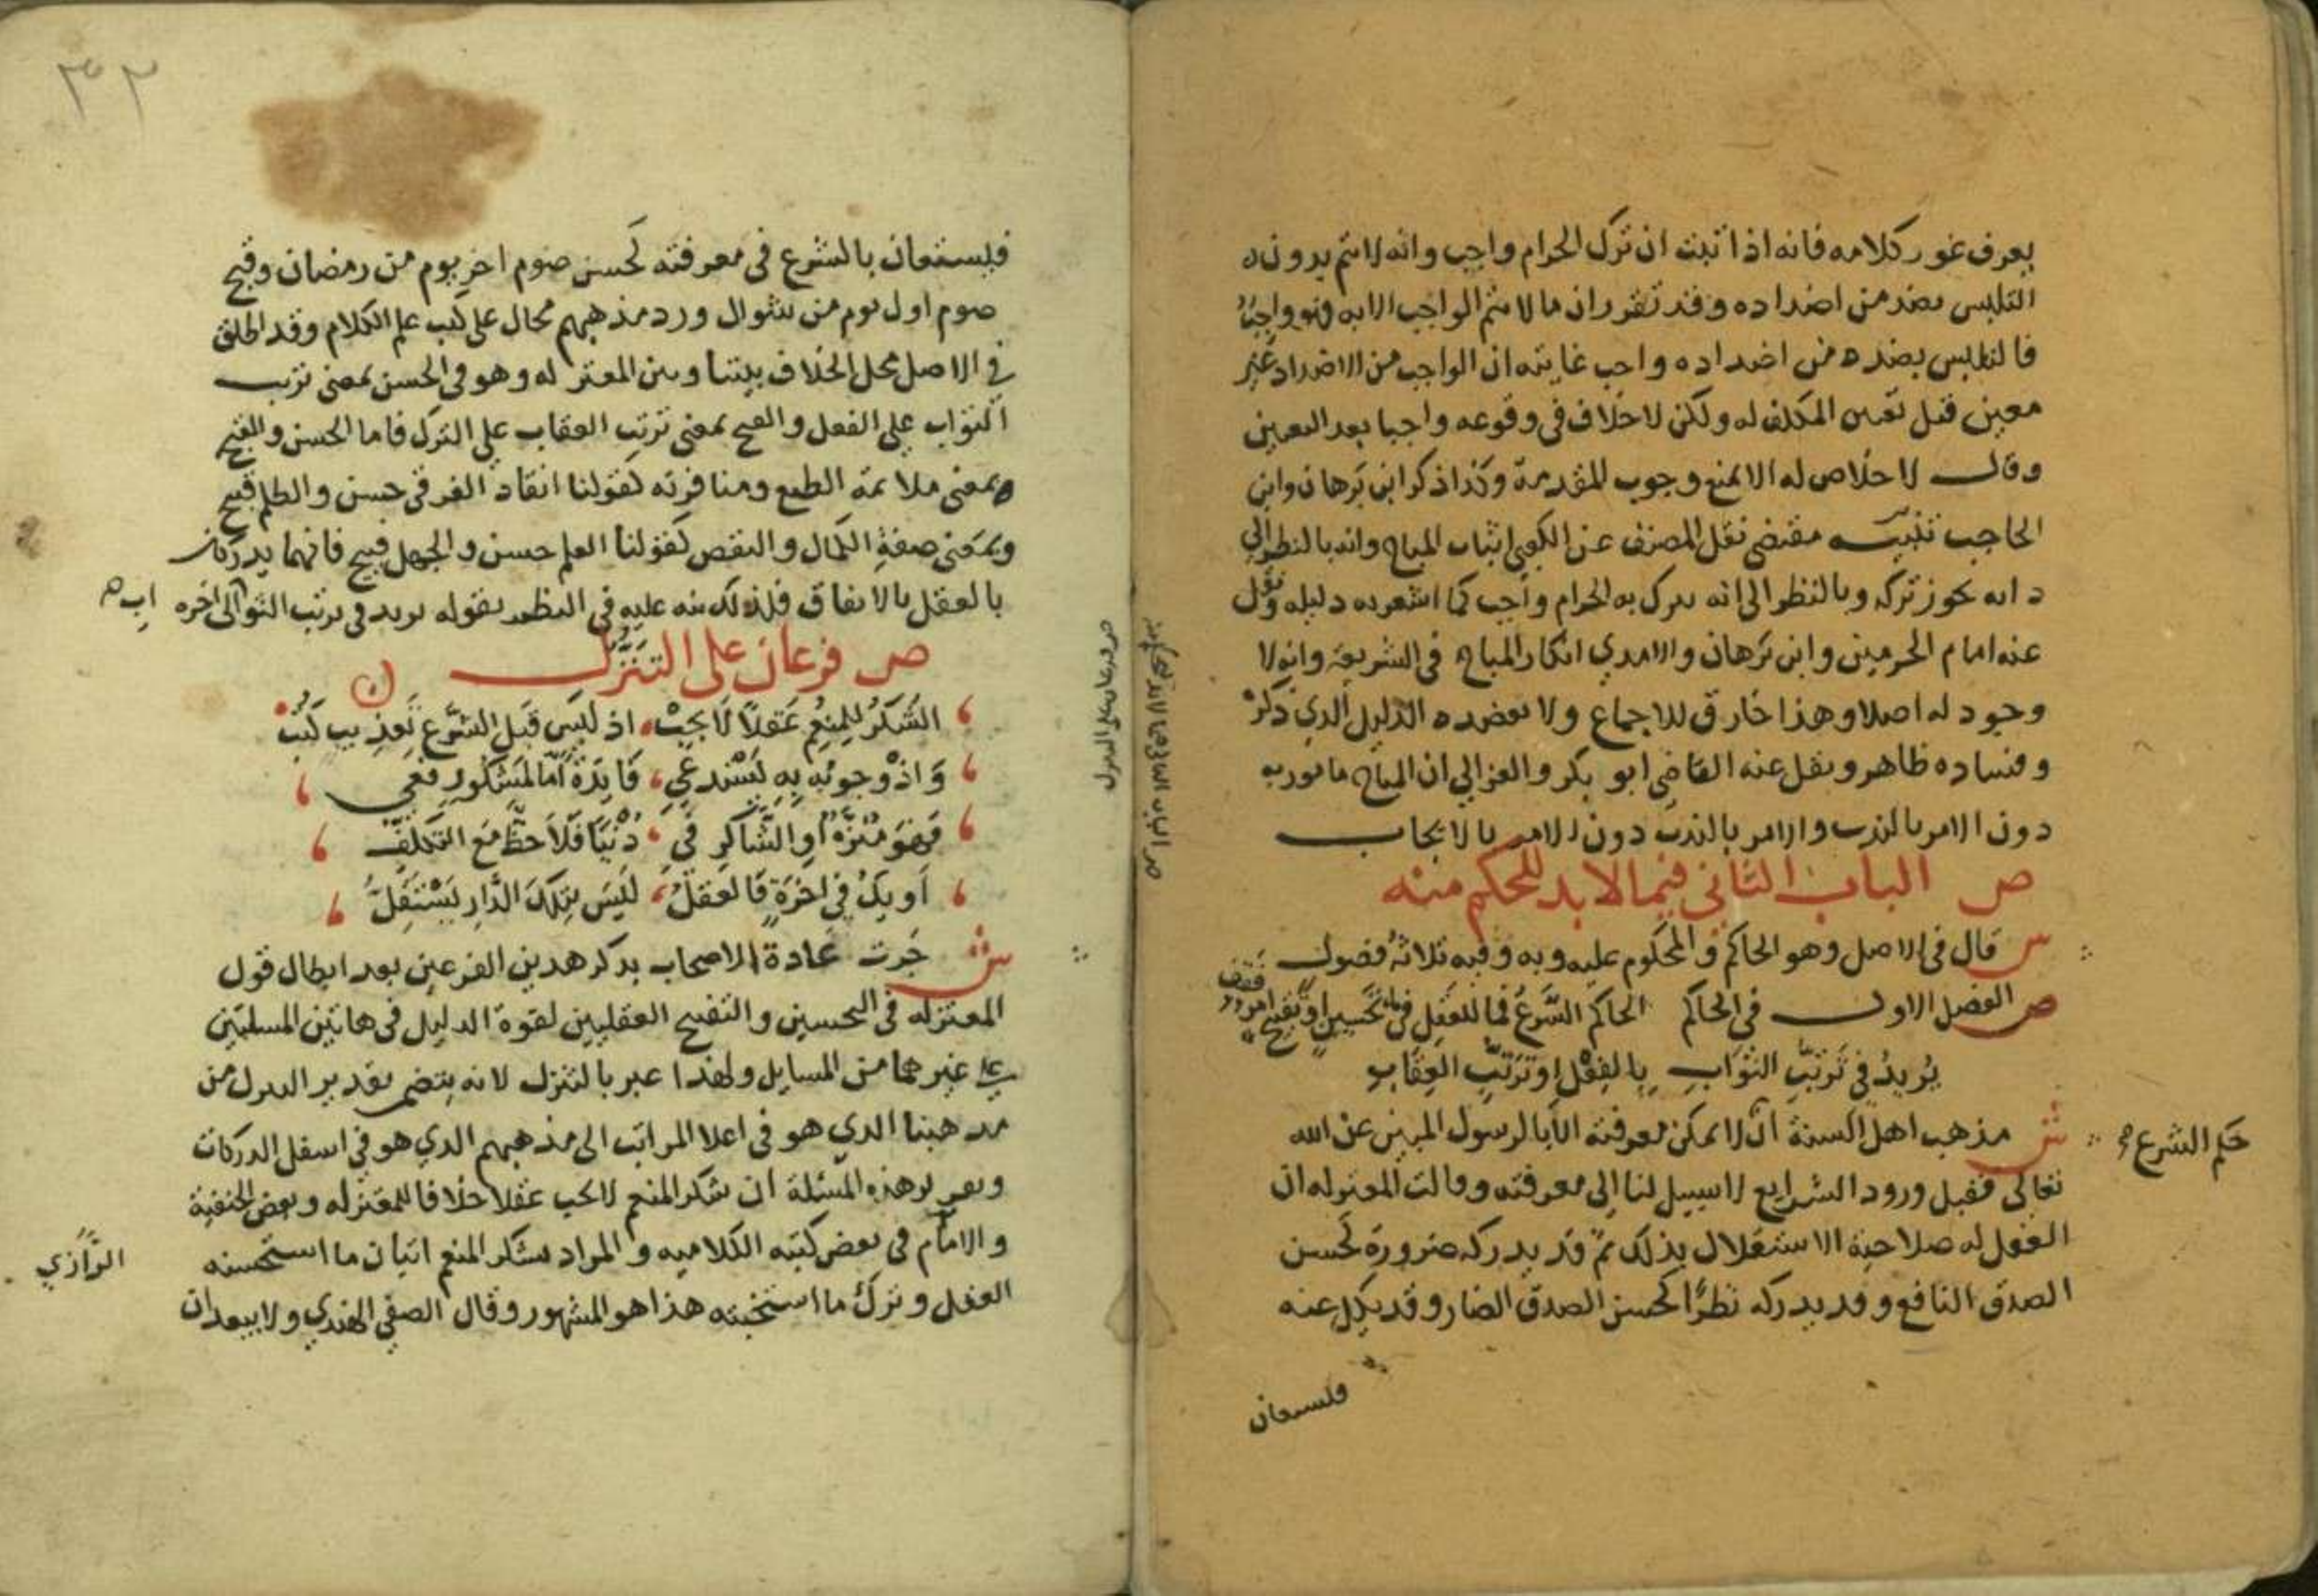 يعرف غور كلامه فانه اذا ثبت ان ترك الحرام واجب وانه لا يتم بدون
التلبس بضد من اضداده وقد تقرر ان ما لا يتم الواجب الا به فهو واجب
فالتلبس بضده من اضداده واجب غايته ان الواجب من الاضداد غير
معين قبل تعين المكلف له ولكن لا خلاف في وقوعه واجبا بعد التعيين
وقال لا خلاص له الا بمنع وجوب المقدمة وكذا ذكر ابن برهان وابن
الحاجب تنبيه مقتضى نقل المصنف عن الكعبي اثبات المباح وانه بالنظر الى
ذاته يجوز تركه وبالنظر الى انه يترك به الحرام واجب كما اشعر به دليله ونقل
عنه امام الحرمين وابن برهان والامدي انكار المباح في الشريعة وانه لا
وجود له اصلا وهذا خارق للاجماع ولا يعضده الدليل الذي ذكر
وفساده ظاهر ونقل عنه القاضي ابو بكر والغزالي ان المباح مامور به
دون الامر بالندب والامر بالندب دون الامر بالايجاب
ص الباب الثاني فيما لا بد للحكم منه
ش قال في الاصل وهو الحاكم والمحكوم عليه وبه وفيه ثلاثة فصول
ص الفصل الاول في الحاكم الحاكم الشرع فما للعقل في تحسين او تقبيح
يُريدُ في تَرتّبِ الثوَابِ بالفِعْلِ او ترتّبِ العِقَابِ
ش مذهب اهل السنة ان لا يمكن معرفته الا بالرسول المبين عن الله
حكم الشرع
تعالى فقبل ورود الشرايع لا سبيل لنا الى معرفته وقالت المعتزله ان
العقل له صلاحية الاستقلال بذلك ثم قد يدركه ضرورة كحسن
الصدق النافع وقد يدركه نظرًا كحسن الصدق الضار وقد يكل عنه
فلستعان
٣٢
فليستعان بالشرع في معرفته كحسن صوم اخر يوم من رمضان وقبح
صوم اول يوم من شوال ورد مذهبهم محال على كتب علم الكلام وقد اطلق
في الاصل محل الخلاف بيننا وبين المعتزله وهو في الحسن بمعنى ترتب
الثواب على الفعل والقبح بمعنى ترتب العقاب على الترك فاما الحسن والقبح
بمعنى ملائمة الطبع ومنافرته كقولنا انقاد الغرقى حسن والظلم قبيح
وبمعنى صفة الكمال والنقص كقولنا العلم حسن والجهل قبيح فانهما يدركان
بالعقل بالاتفاق فلذلك نبه عليه في النظم بقوله يريد في ترتب الثواب الى اخره
ص فرعان على التنَزّل
الشُكرُ لِلمنعِمِ عَقلاً لا يجِبْ اذ لَيسَ قَبلَ الشّرعِ تَعذِيب كُتِبْ
وَاذْ وجوبُه بِه يَسْتدعي فَايِدَةً امّا لمَشكُورٍ فعي
فَهوَ منزّهٌ اوِ الشّاكرِ في دُنيَا فَلاَ حظّ مَعَ التّكلفِ
اَو يكُ في اخرَةٍ فَالعَقلُ لَيسَ بتلكَ الدَّارِ يَسْتَقِلُّ
ش جَرت عَادة الاصحاب بذكر هذين الفرعين بعد ابطال قول
المعتزله في التحسين والتقبيح العقليين لقوة الدليل في هاتين المسلتين
على غيرهما من المسايل ولهذا عبر بالتنزل لانه يتضمن تقدير النزول من
مذهبنا الذي هو في اعلا المراتب الى مذهبهم الذي هو في اسفل الدركات
وتقرير هذه المسئلة ان شكر المنعم لا يجب عقلا خلافا للمعتزله وبعض الحنفية
والامام في بعض كتبه الكلاميه والمراد بشكر المنعم اتيان ما استحسنه
الرَّازي
العقل وترك ما استخبثه هذا هو المشهور وقال الصفي الهندي ولا يبعد ان